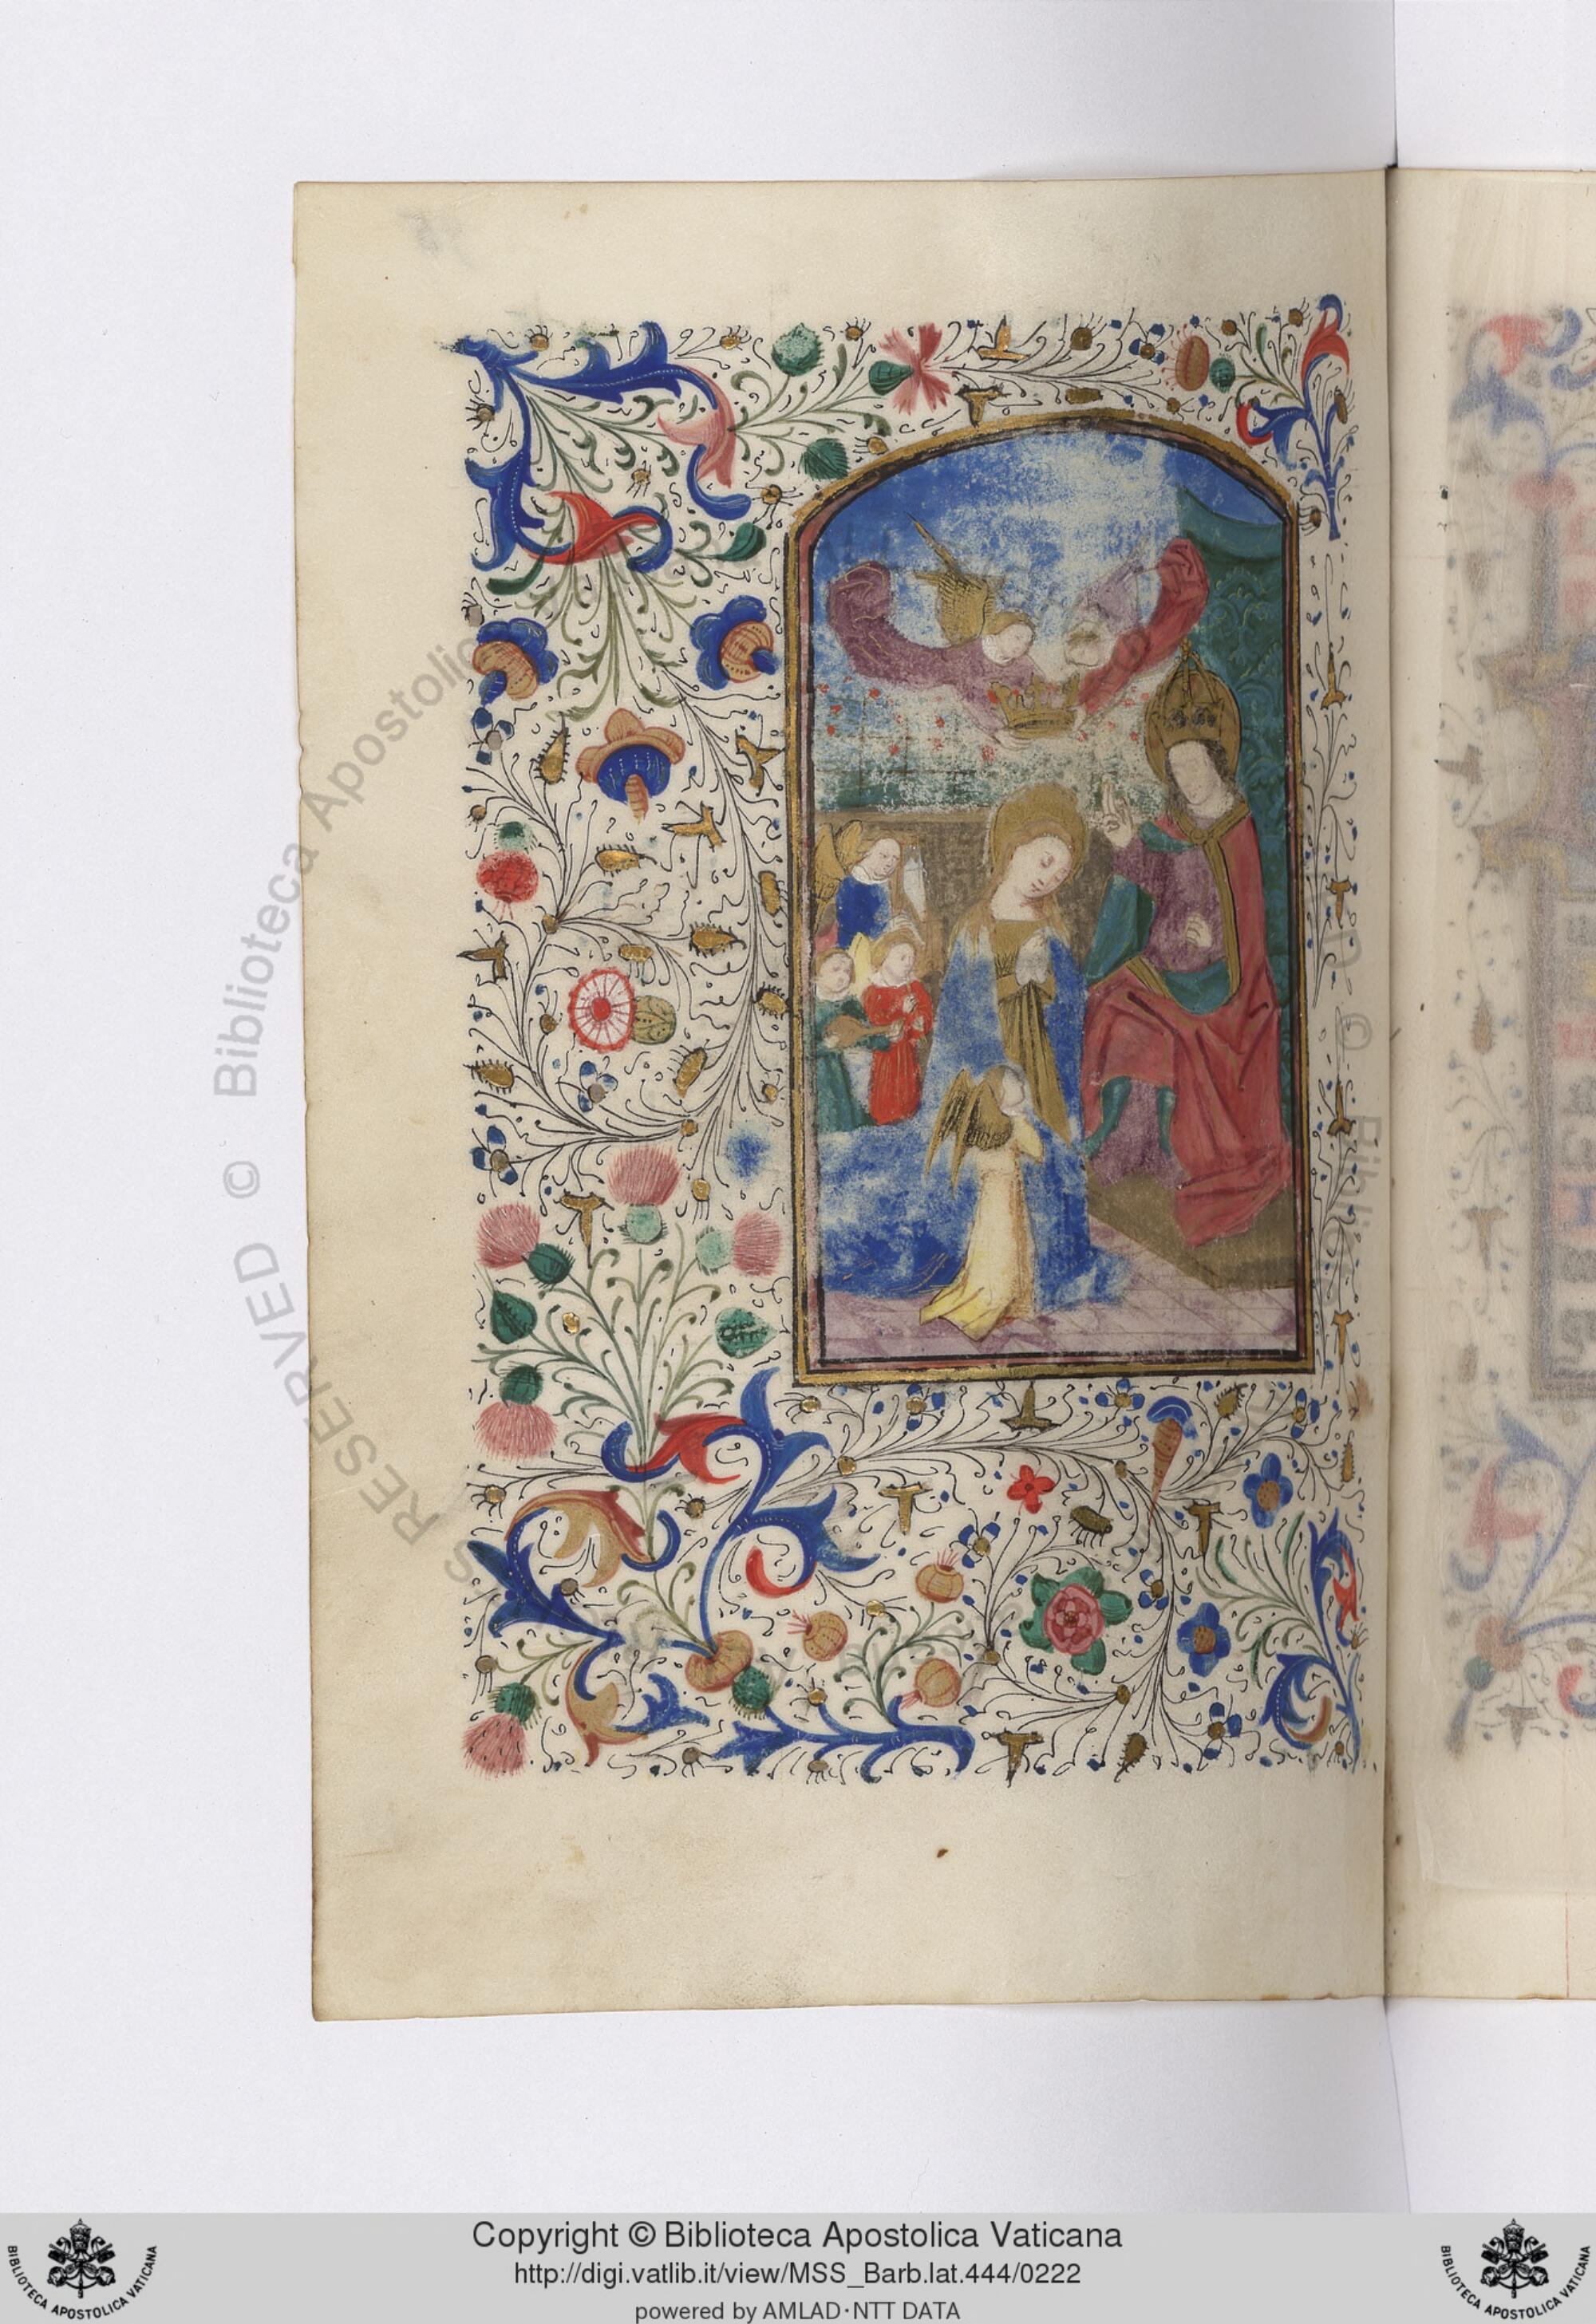 RESERVED © Biblioteca Apostolica
© Bibli
Copyright © Biblioteca Apostolica Vaticana
http://digi.vatlib.it/view/MSS_Barb.lat.444/0222
powered by AMLAD·NTT DATA
BIBLIOTECA APOSTOLICA VATICANA
BIBLIOTECA APOSTOLICA VATICANA